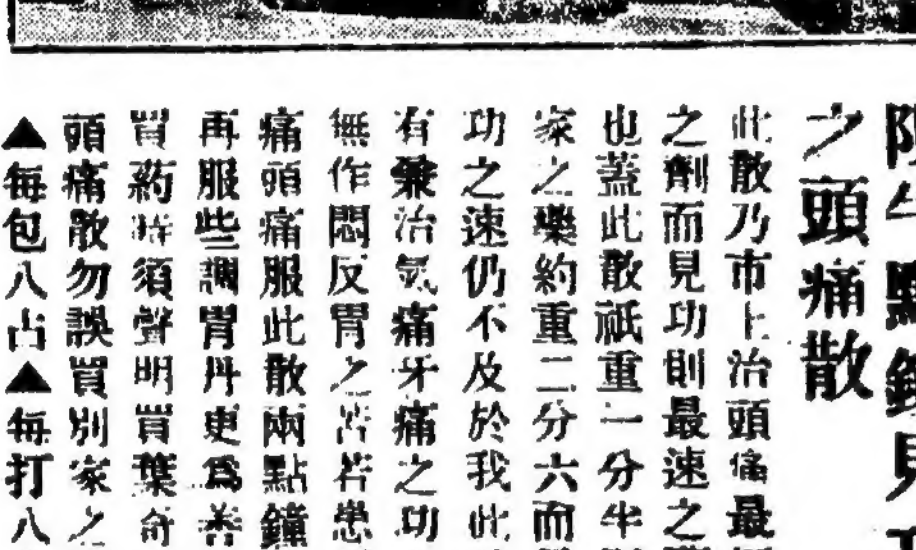 之頭痛散
此散乃市上治頭痛最
之劑而見功則最速之
也蓋此散祇重一分半
家之藥約重二分六而
功之速仍不及於我此
有兼治氣痛牙痛之功
無作悶反胃之苦若患
痛頭痛服此散兩點鐘
再服些調胃丹更爲善
買药時須聲明買葉
頭痛散勿誤買別家之
▲每包八占▲每打八